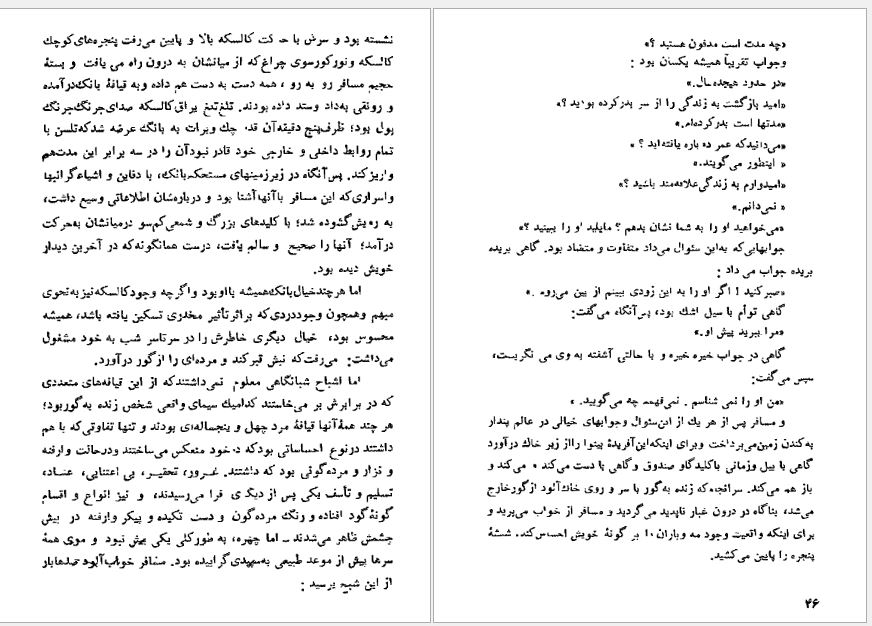 نشسته بود و سرش با حرکت کالسکه بالا و پایین می‌رفت پنجره‌های کوچک
کالسکه و نورکورسوی چراغ که از میانشان به درون راه می یافت و بستهٔ
حجیم مسافر رو به رو ، همه دست به دست هم داده و به قیافهٔ بانک درآمده
و رونقی به داد وستد داده بودند. تلغ‌تلغ یراق کالسکه صدای جرنگ‌جرنگ
پول بود؛ ظرف پنج دقیقه آن قدر چك وبرات به بانگ عرضه شد که تلسن با
تمام روابط داخلی و خارجی خود قادر نبود آن را در سه برابر این مدت هم
واریز کند. پس آنگاه در زیرزمینهای مستحکم بانك، با دفاین و اشیاء گرانبها
واسراری که این مسافر با آنها آشنا بود و درباره‌شان اطلاعاتی وسیع داشت،
به رویش گشوده شد؛ با کلیدهای بزرگ و شمعی کم‌سو درمیانشان به‌حرکت
درآمد؛ آنها را صحیح و سالم یافت، درست همانگونه که در آخرین دیدار
خویش دیده بود.
اما هر چند خیال بانك همیشه با او بود و اگرچه وجود کالسکه نیز به نحوی
مبهم وهمچون وجود دردی که بر اثر تأثیر مخدری تسکین یافته باشد، همیشه
محسوس بود، خیال دیگری خاطرش را در سرتاسر شب به خود مشغول
می‌داشت: می‌رفت که نبش قبر کند و مرده‌ای را از گور درآورد.
اما اشباح شبانگاهی معلوم نمی‌داشتند که از این قیافه‌های متعددی
که در برابرش بر می‌خاستند کدامیك سیمای واقعی شخص زنده به گور بود؛
هر چند همهٔ آنها قیافهٔ مرد چهل و پنجساله‌ای بودند و تنها تفاوتی که با هم
داشتند درنوع احساساتی بود که در خود منعکس می‌ساختند ودرحالت وارفته
و نزار و مرده‌گونی بود که داشتند. غرور، تحقیر، بی اعتنایی، عناد،
تسلیم و تأسف یکی پس از دیگری فرا می‌رسیدند، و نیز انواع و اقسام
گونهٔ گود افتاده و رنگ مرده‌گون و دست تکیده و پیکر وارفته در پیش
چشمش ظاهر می‌شدند ــ اما چهره، به طور کلی یکی بیش نبود و موی همهٔ
سرها پیش از موعد طبیعی به‌سپیدی گراییده بود. مسافر خواب‌آلود صدها بار
از این شبح پرسید :
«چه مدت است مدفون هستید ؟»
وجواب تقریباً همیشه یکسان بود :
«در حدود هیجده سال.»
«امید بازگشت به زندگی را از سر بدر کرده بودید ؟»
«مدتها است بدر کرده‌ام.»
«می‌دانید که عمر دوباره یافته‌اید ؟ »
« اینطور می گویند.»
«امیدوارم به زندگی علاقه‌مند باشید ؟»
« نمی‌دانم.»
«می‌خواهید او را به شما نشان بدهم ؟ مایلید او را ببینید ؟»
جوابهایی که به این سئوال می‌داد متفاوت و متضاد بود. گاهی بریده
بریده جواب می داد :
«صبر کنید ! اگر او را به این زودی ببینم از بین می‌روم .»
گاهی توأم با سیل اشك بود، پس آنگاه می‌گفت:
«مرا ببرید پیش او.»
گاهی در جواب خیره خیره و با حالتی آشفته به وی می نگریست،
سپس می‌گفت:
«من او را نمی شناسم . نمی‌فهمم چه می‌گویید. »
و مسافر پس از هر یك از این سئوال وجوابهای خیالی در عالم پندار
به کندن زمین می‌پرداخت وبرای اینکه این آفریدهٔ بینوا را از زیر خاك درآورد
گاهی با بیل وزمانی با کلید گاو صندوق وگاهی با دست می‌کند و می‌کند و
باز هم می‌کند. سرانجام که زنده به گور با سر و روی خاك آلود از گور خارج
می‌شد، بناگاه در درون غبار ناپدید می‌گردید و مسافر از خواب می‌پرید و
برای اینکه واقعیت وجود مه وباران را بر گونهٔ خویش احساس کند، شیشهٔ
پنجره را پایین می‌کشید.
۴۶